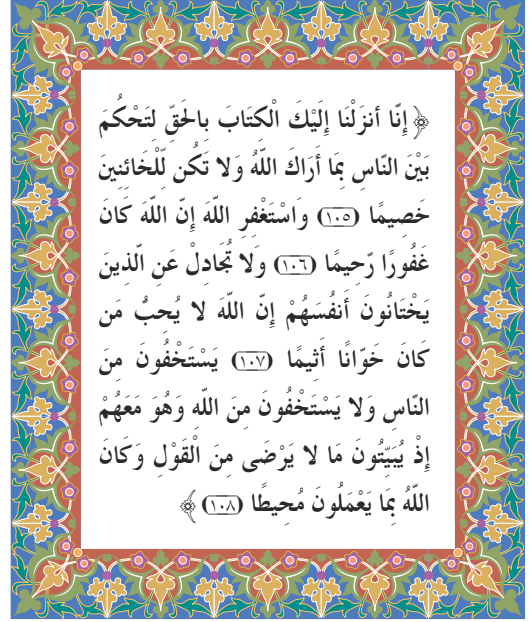 ﴿ إِنَّا أنزَلْنَا إِلَيْكَ الْكتَابَ بالحَقِّ لتَحْكُمَ
بَيْنَ النّاس بمَا أَرَاكَ اللَّهُ وَلا تَكُن لّلْخَائنينَ
خَصيمًا (١٠٥) وَاسْتَغْفر اللَّهَ إنّ اللّهَ كَانَ
غَفُورًا رّحيمًا (١٠٦) وَلا تُجَادلْ عَن الّذينَ
يَخْتَانُونَ أنفُسَهُمْ إِنّ اللّهَ لا يُحبُّ مَن
كَانَ خَوّانًا أثيمًا (١٠٧) يَسْتَخْفُونَ منَ
النّاس وَلا يَسْتَخْفُونَ منَ اللّه وَهُوَ مَعَهُمْ
إذْ يُبَيّتُونَ مَا لا يَرْضَى منَ الْقَوْل وَكَانَ
اللّهُ بمَا يَعْمَلُونَ مُحيطًا (١٠٨) ﴾